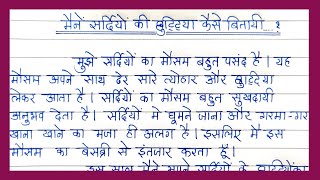 मैंने सर्दियों की छुट्टियां कैसे बितायी...?
मुझे सर्दियों का मौसम बहुत पसंद है। यह
मौसम अपने साथ ढेर सारे त्योहार और छुट्टियां
लेकर आता है। सर्दियों का मौसम बहुत सुखदायी
अनुभव देता है। सर्दियों में घूमने जाना और गरमा-गर
खाना खाने का मजा ही अलग है। इसलिए मैं इस
मौसम का बेसब्री से इंतजार करता हूँ।
इस साल मैंने अपने सर्दियों के